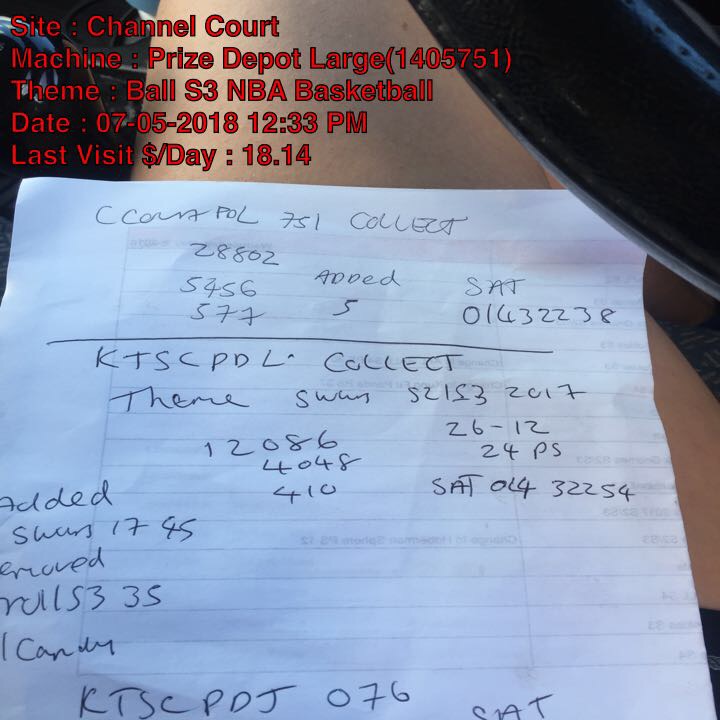 Site : Channel Court
Machine : Prize Depot Large(1405751)
Theme : Ball S3 NBA Basketball
Date : 07-05-2018 12:33 PM
Last Visit $/Day : 18.14
751 COLLECT
28802
5456 ADDed SAT
577 5 01432238
KTSCPDL. COLLECT
Theme swans S2/S3 2017
12086 26-12
4048 24 PS
410 SAT 014 32254
Added
swans 17 45
emoved
S3 35
Candy
KTSCPDJ 076 SAT